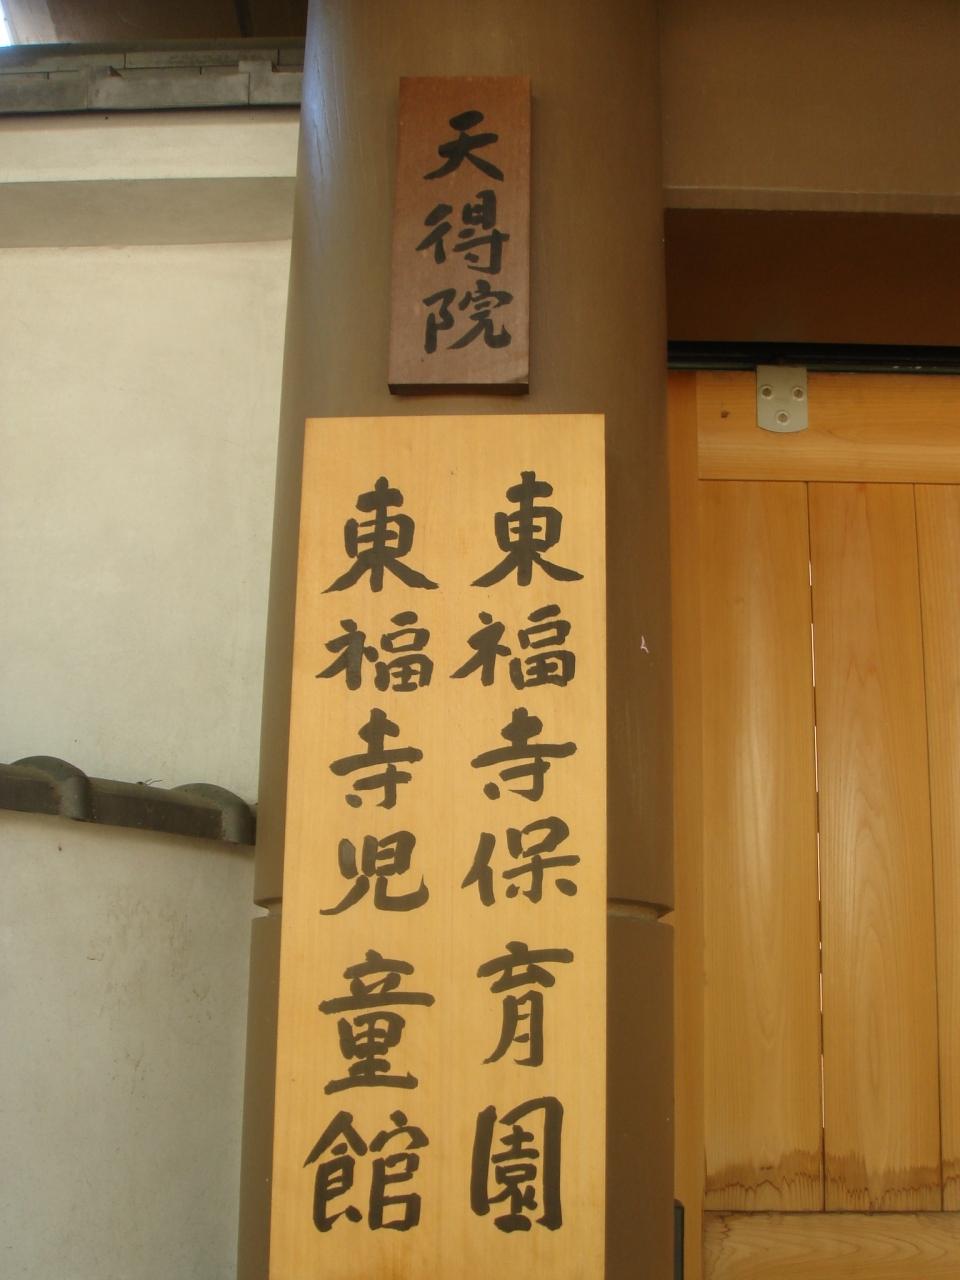 天得院
東福寺保育園
東福寺児童館